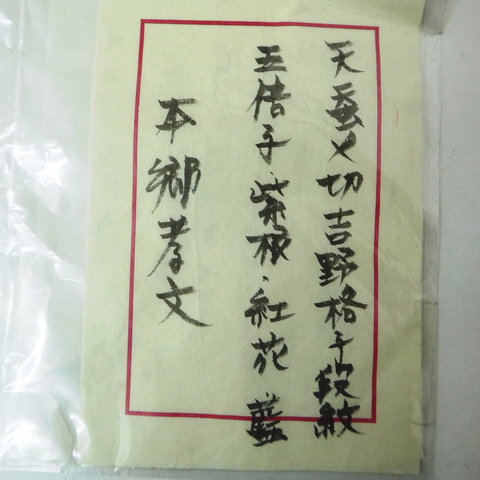 天蚕〆切吉野格子段紋
五倍子、紫根、紅花 藍
本郷孝文